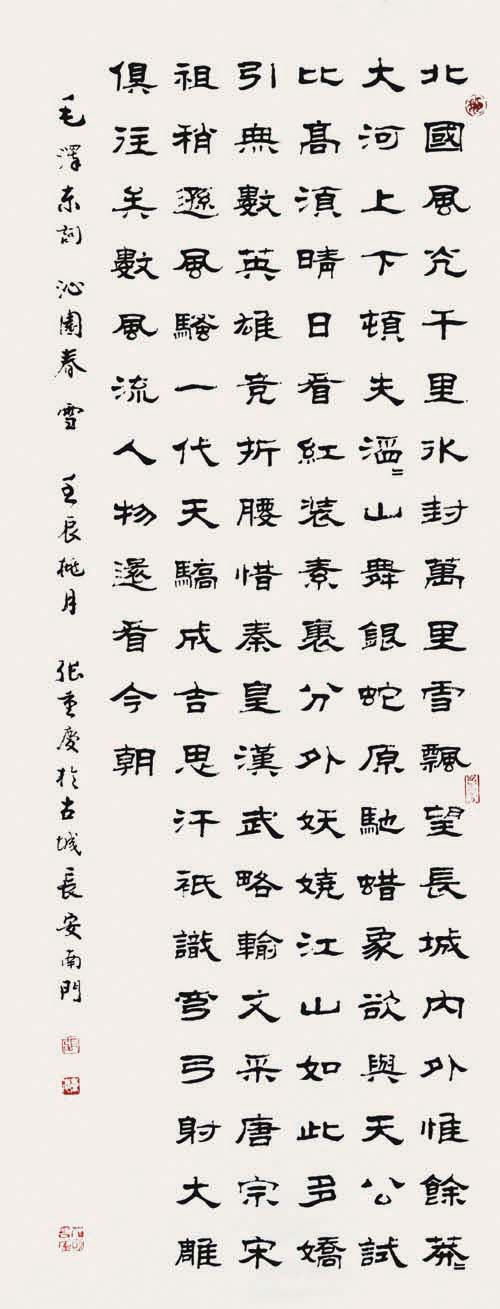 北國風光千里冰封萬里雪飄望長城內外惟餘莽〻
大河上下頓失滔〻山舞銀蛇原馳蜡象欲與天公試
比高須晴日看紅裝素裹分外妖嬈江山如此多嬌
引無數英雄竞折腰惜秦皇漢武略輸文采唐宗宋
祖稍遜風騷一代天驕成吉思汗祇識彎弓射大雕
俱往矣數風流人物還看今朝
毛澤东詞 沁園春 雪 壬辰桃月 張重慶於古城長安南門